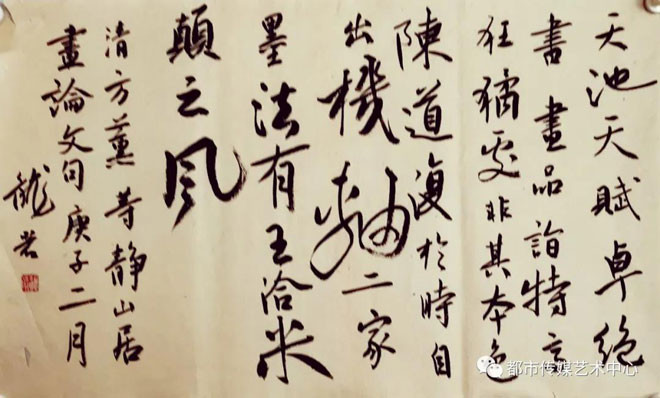 天池天賦卓绝
書畫品詣特高
狂獝處非其本色
陳道復於時自
出機軸二家
墨法有王洽米
顛之風
清方薰等靜山居
畫論文句庚子二月
龍
都市传媒艺术中心